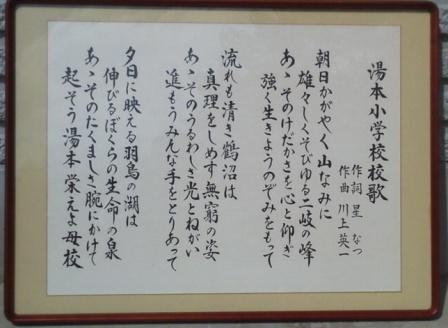 湯本小学校校歌
作詞 星 なつ
作曲 川上英一
朝日かがやく山なみに
雄々しくそびゆる二岐の峰
あゝそのけだかさを心と仰ぎ
強く生きようのぞみをもって
流れも清き鶴沼は
真理をしめす無窮の姿
あゝそのうるわしき光とねがい
進もうみんな手をとりあって
夕日に映える羽鳥の湖は
伸びるぼくらの生命の泉
あゝそのたくましき腕にかけて
起そう湯本栄えよ母校